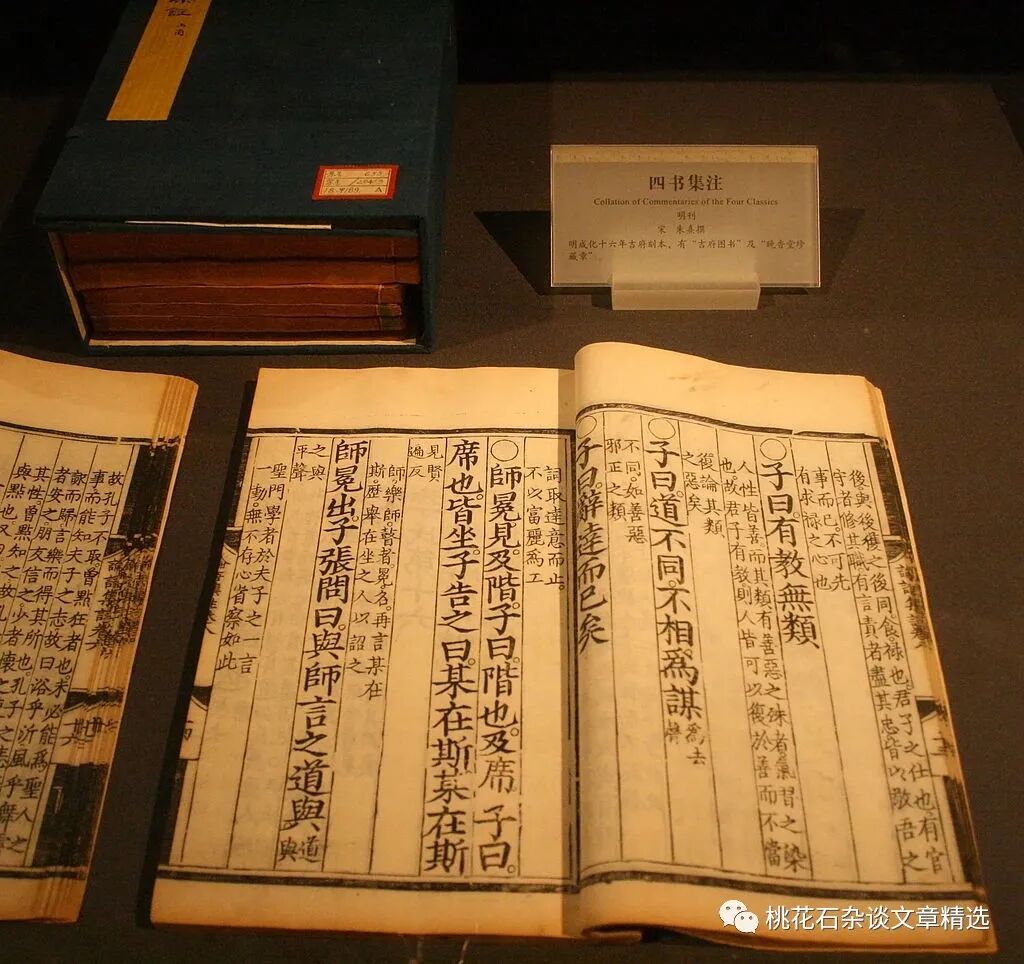 四书集注
Collation of Commentaries of the Four Classics
明刊
宋 朱熹撰
明成化十六年吉府刻本，有“吉府图书”及“晚香堂珍
藏章”
後與後獲之後同食祿也君子之仕也有官
守者修其職有言責者盡其忠皆以敬吾之
事而已不可先
有求祿之心也
○子曰有教無類
人性皆善而其類有善惡之殊者氣習之染
也故君子有教則人皆可以復於善而不當
復論其類
之惡矣
○子曰道不同不相為謀
為去
聲
不同如善惡
邪正之類
○子曰辭達而已矣
詞取達意而止
不以富麗為工
○師冕見及階子曰階也及席子曰
席也皆坐子告之曰某在斯某在斯
見賢
遍反
師樂師瞽者冕名再言某在
斯歷舉在坐之人以詔之
師冕出子張問曰與師言之道與
與
道
之與
平聲
聖門學者於夫子之一言
一動無不存心省察如此
故孔子不取曾點狂者也未必能為聖人之
事而能知夫子之志故曰浴乎沂風乎舞雩
詠而歸言樂而得其所也孔子之志
桃花石杂谈文章精选